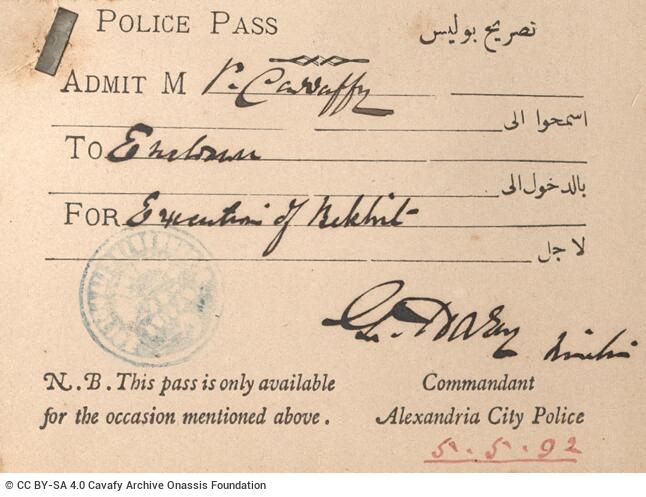 POLICE PASS
تصريح بوليس
ADMIT M P. Cavaffy
اسمحوا الى
TO Enclosure
بالدخول الى
FOR Execution of Bekhit
لاجل
N.B. This pass is only available
for the occasion mentioned above.
Commandant
Alexandria City Police
5.5.92
© CC BY-SA 4.0 Cavafy Archive Onassis Foundation